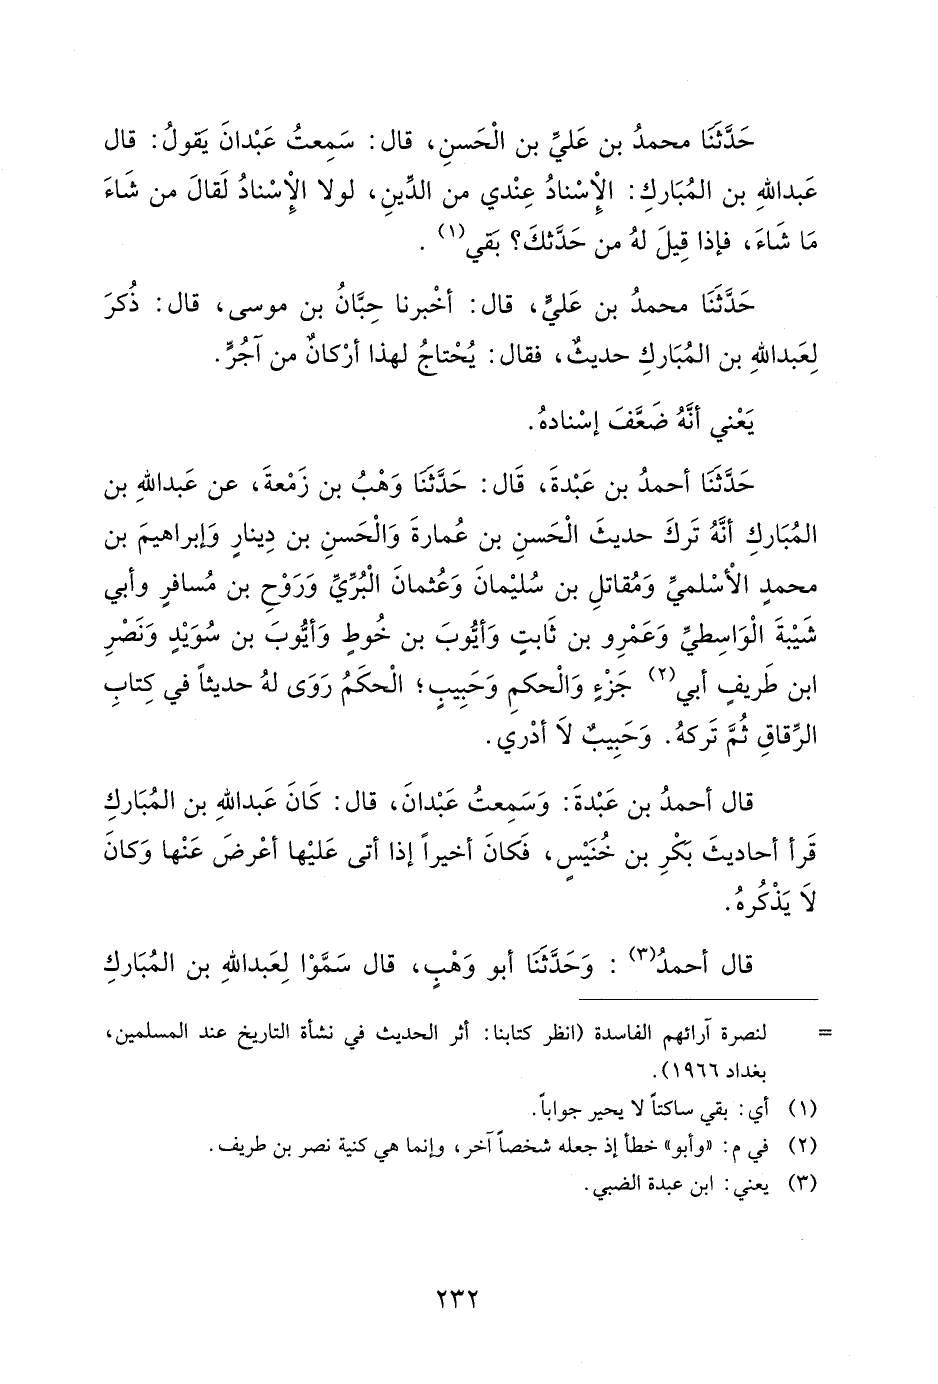 حَدَّثَنَا محمدُ بن عَليِّ بن الْحَسنِ، قال: سَمِعتُ عَبْدانَ يَقولُ: قال
عَبدالله بن المُبَاركِ: الْإِسْنادُ عِنْدي من الدِّينِ، لولا الإِسْنادُ لَقالَ من شَاءَ
مَا شَاءَ، فإذا قِيلَ لهُ من حَدَّثكَ؟ بَقي(١) .
حَدَّثَنَا محمدُ بن عَليٍّ، قال: أخْبرنا حِبَّانُ بن موسى، قال: ذُكرَ
لِعَبدالله بن المُبَاركِ حديثٌ، فقال: يُحْتاجُ لهذا أرْكانٌ من آجُرٍّ.
يَعْني أنَّهُ ضَعَّفَ إسْنادهُ.
حَدَّثَنَا أحمدُ بن عَبْدةَ، قَال: حَدَّثَنَا وَهْبُ بن زَمْعةَ، عن عَبدالله بن
المُبَاركِ أنَّهُ تَركَ حديثَ الْحَسنِ بن عُمارةَ وَالْحَسنِ بن دِينارٍ وَإبراهيمَ بن
محمدٍ الأَسْلميِّ وَمُقاتلِ بن سُليْمانَ وَعُثمانَ الْبُرِّيِّ وَرَوْحِ بن مُسافرٍ وأبي
شَيْبةَ الْوَاسِطيِّ وَعَمْرِو بن ثَابتٍ وَأيُّوبَ بن خُوطٍ وَأيُّوبَ بن سُوَيْدٍ وَنَصْرِ
ابن طَريفٍ أبي(٢) جَزْءٍ وَالْحكمِ وَحَبِيبٍ؛ الْحكَمُ رَوَى لهُ حديثاً في كِتابِ
الرِّقاقِ ثُمَّ تَركهُ. وَحَبِيبٌ لاَ أدْري.
قال أحمدُ بن عَبْدةَ: وَسَمِعتُ عَبْدانَ، قال: كَانَ عَبدالله بن المُبَاركِ
قَرأ أحاديثَ بَكْرِ بن خُنَيْسٍ، فَكانَ أخيراً إذا أتى عَليْها أعْرضَ عَنْها وَكانَ
لاَ يَذْكُرهُ.
قال أحمدُ(٣) : وَحَدَّثَنَا أبو وَهْبٍ، قال سَمَّوْا لِعَبدالله بن المُبَاركِ
= لنصرة آرائهم الفاسدة (انظر كتابنا: أثر الحديث في نشأة التاريخ عند المسلمين،
بغداد ١٩٦٦).
(١) أي: بقي ساكتاً لا يحير جواباً.
(٢) في م: «وأبو» خطأ إذ جعله شخصاً آخر، وإنما هي كنية نصر بن طريف.
(٣) يعني: ابن عبدة الضبي.
٢٣٢